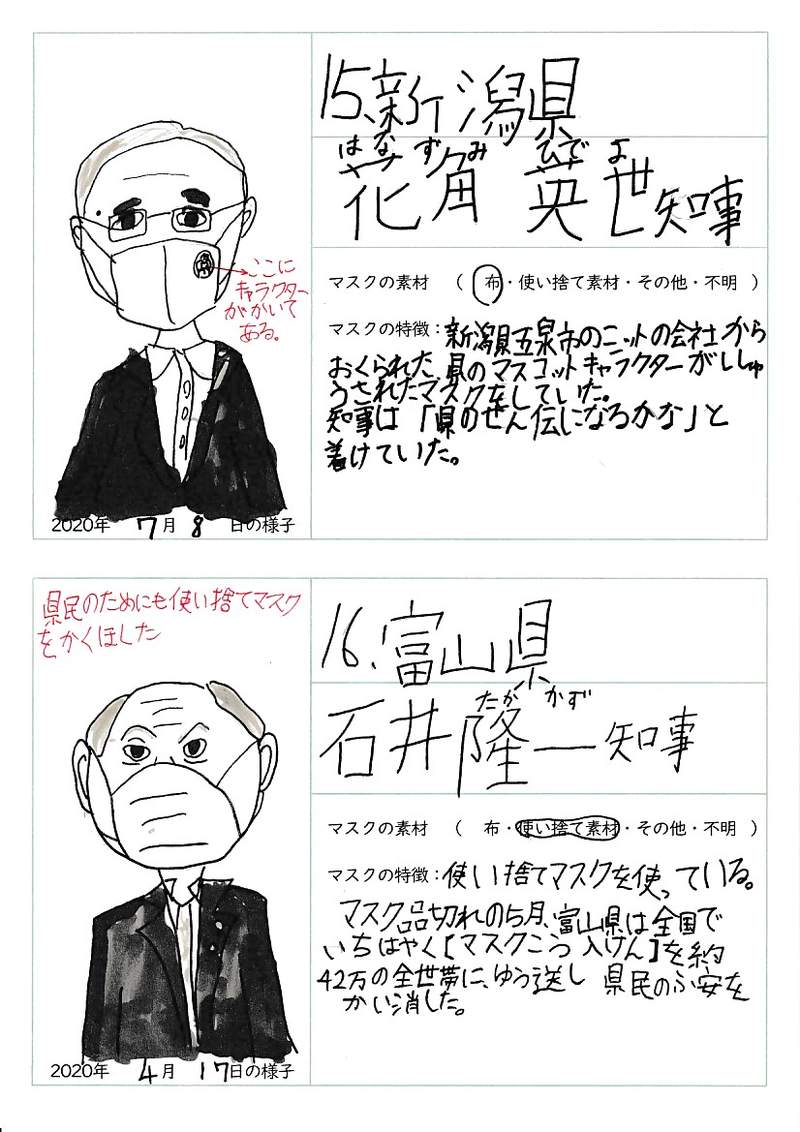 15.新潟県
はなずみ ひでよ
花角 英世知事
ここに
キャラクター
がかいて
ある。
マスクの素材 ( 布・使い捨て素材・その他・不明 )
マスクの特徴：新潟県五泉市のニットの会社から
おくられた、県のマスコットキャラクターがししゅ
うされたマスクをしていた。
知事は「県のせん伝になるかな」と
着けていた。
2020年 7月 8 日の様子
県民のためにも使い捨てマスク
をかくほした
16.富山県
たか かず
石井隆一知事
マスクの素材 ( 布・使い捨て素材・その他・不明 )
マスクの特徴：使い捨てマスクを使っている。
マスク品切れの5月、富山県は全国で
いちはやく[マスクこう入けん]を約
42万の全世帯に、ゆう送し 県民のふ安を
かい消した。
2020年 4月 17日の様子